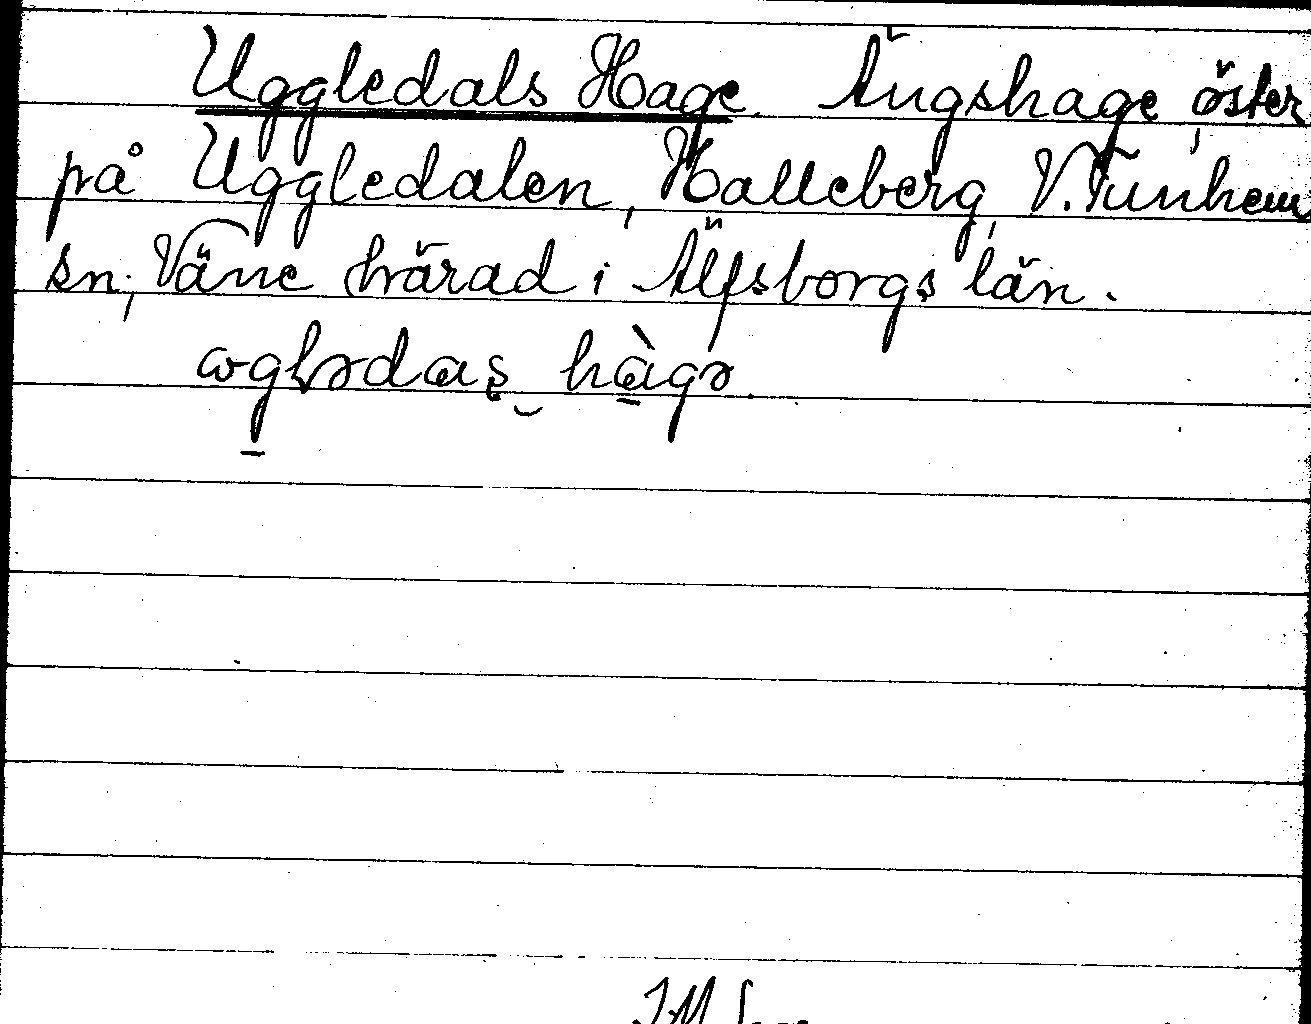 Uggledals Hage. Ängshage öster
på Uggledalen, Halleberg, V. Tunhem
sn, Väne härad i Älfsborgs län.
ɷglədaʂ hàgə